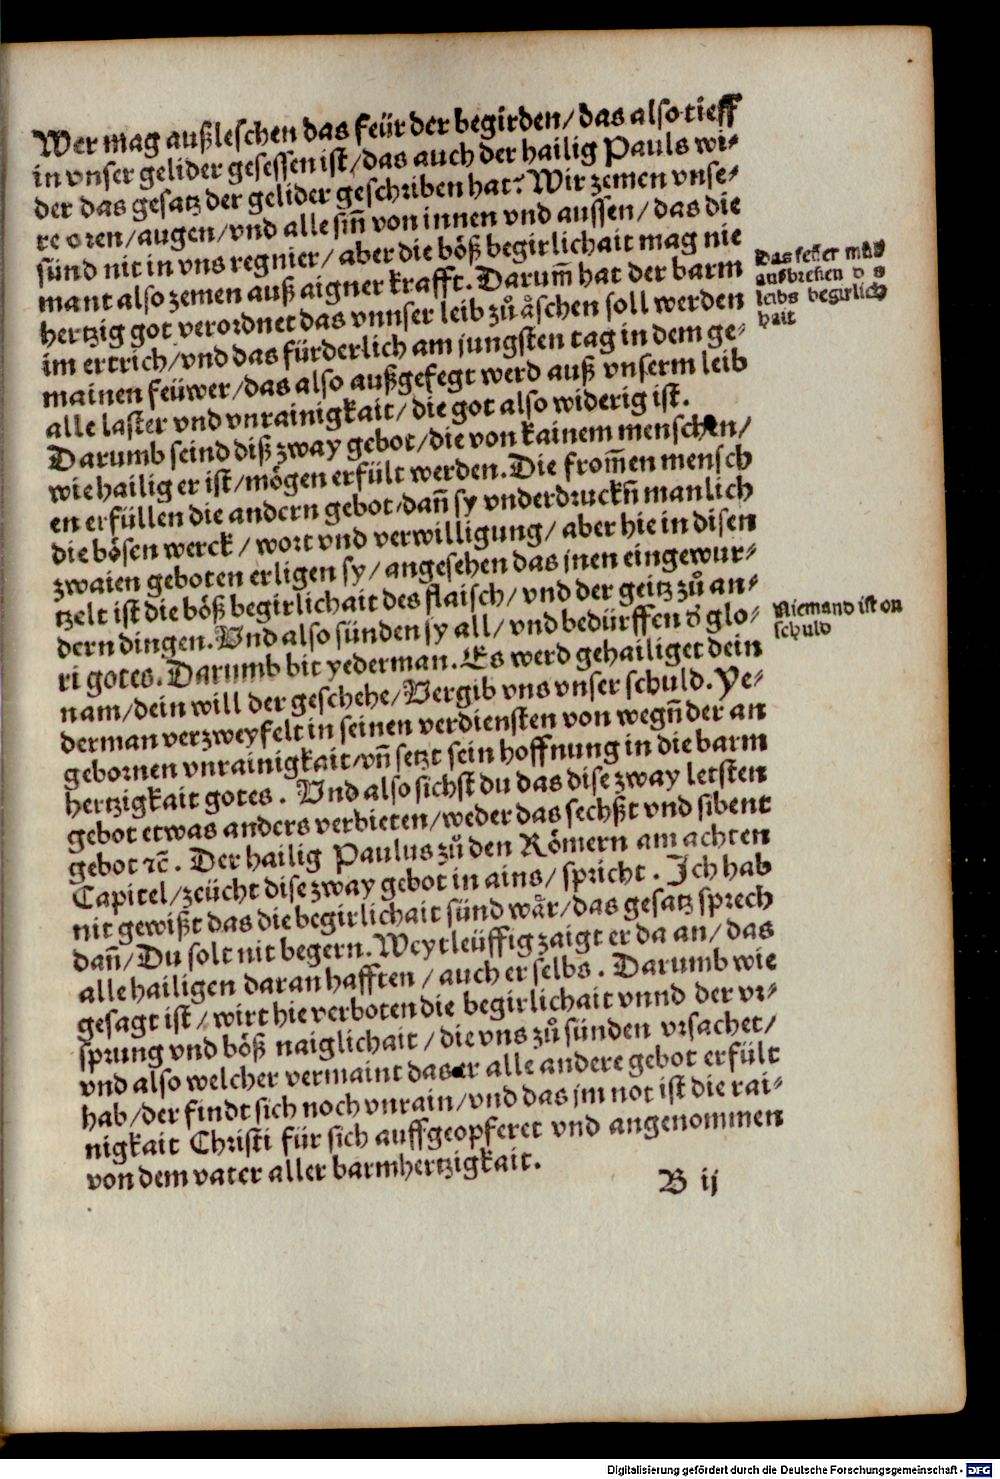 Wer mag außleschen das feür der begirden/das also tieff
in vnser gelider gesessen ist/das auch der hailig Pauls wi-
der das gesatz der gelider geschriben hat? Wir zemen vnse-
re oren/augen/vnd alle sin̄ von innen vnd aussen/das die
sünd nit in vns regnier/aber die böß begirlichait mag nie
mant also zemen auß aigner krafft. Darum̄ hat der barm
hertzig got verordnet das vnnser leib zů åschen soll werden
im ertrich/vnd das fürderlich am jungsten tag in dem ge-
mainen feüwer/das also außgefegt werd auß vnserm leib
alle laster vnd vnrainigkait/die got also widerig ist.
Darumb seind diß zway gebot/die von kainem menschen/
wie hailig er ist/mögen erfült werden. Die from̄en mensch
en erfüllen die andern gebot/dan̄ sy vnderdruckn̄ manlich
die bösen werck/wort vnd verwilligung/aber hie in disen
zwaien geboten erligen sy/angesehen das jnen eingewur-
tzelt ist die böß begirlichait des flaisch/vnd der geitz zů an-
dern dingen. Vnd also sünden sy all/vnd bedürffen d̄ glo-
ri gotes. Darumb bit yederman. Es werd gehailiget dein
nam/dein will der geschehe/Vergib vns vnser schuld. Ye-
derman verzweyfelt in seinen verdiensten von wegn̄ der an
gebornen vnrainigkait/vn̄ setzt sein hoffnung in die barm
hertzigkait gotes. Vnd also sichst du das dise zway letsten
gebot etwas anders verbieten/weder das sechßt vnd sibent
gebot ꝛc̄. Der hailig Paulus zů den Römern am achten
Capitel/zeücht dise zway gebot in ains/spricht. Ich hab
nit gewißt das die begirlichait sünd wår/das gesatz sprech
dan̄/Du solt nit begern. Weytleüffig zaigt er da an/das
alle hailigen daran hafften/auch er selbs. Darumb wie
gesagt ist/wirt hie verboten die begirlichait vnnd der vr-
sprung vnd böß naiglichait/die vns zů sünden vrsachet/
vnd also welcher vermaint das er alle andere gebot erfült
hab/der findt sich noch vnrain/vnd das jm not ist die rai-
nigkait Christi für sich auffgeopferet vnd angenommen
von dem vater aller barmhertzigkait.
B ij
Das feüer
ausbrefien
leibs begirlich
hait
Niemand ist on
schuld
Digitalisierung gefördert durch die Deutsche Forschungsgemeinschaft - DFG